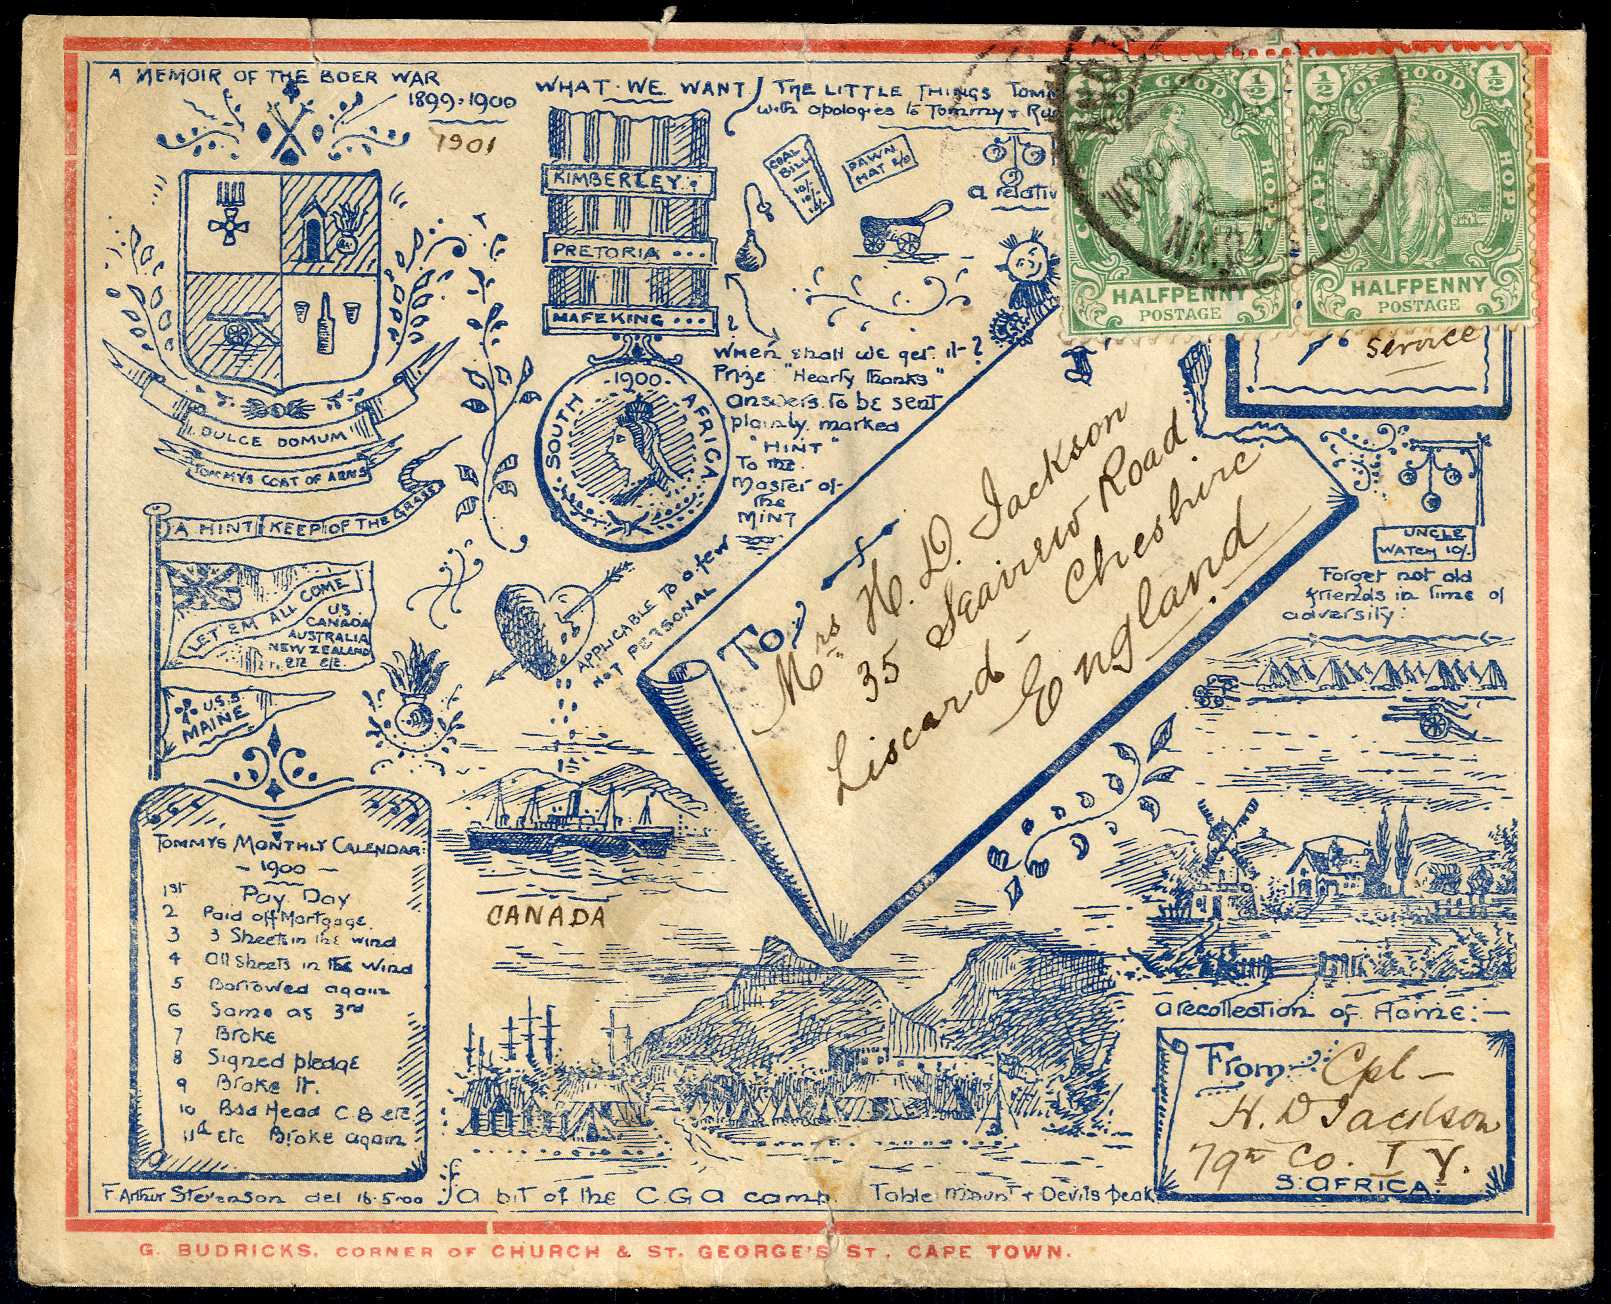 A MEMOIR OF THE BOER WAR
1899-1900
1901
WHAT WE WANT
THE LITTLE THINGS
with apologies to Tommy +
KIMBERLEY
PRETORIA
MAFEKING
COAL
BILL
10/-
10/-
PAWN
HAT 2/0
a relative
CAPE OF GOOD HOPE
½
½
HALFPENNY
POSTAGE
CAPE OF GOOD HOPE
½
½
HALFPENNY
POSTAGE
Service
When shall we get it-?
Prize "Hearty Thanks"
Answers to be sent
plainly marked
"HINT"
To the
Master of
the
MINT
1900
SOUTH AFRICA
DULCE DOMUM
TOMMYS COAT OF ARMS
A HINT KEEP OF THE GRASS
LET 'EM ALL COME
U.S.
CANADA
AUSTRALIA
NEW ZEALAND
etc etc.
U.S.S
MAINE
APPLICABLE TO a few
NOT PERSONAL
UNCLE
WATCH 10/-
Forget not old
friends in time of
adversity:
To
Mrs H. D. Jackson
35 Seaview Road
Liscard - Cheshire
England
TOMMYS MONTHLY CALENDAR:
- 1900 -
1st Pay Day
2 Paid off Mortgage.
3 3 Sheets in the wind
4 All Sheets in the Wind
5 Borrowed again
6 Same as 3rd
7 Broke
8 Signed pledge
9 Broke it.
10 Bad Head C.B etc
11th etc Broke again
CANADA
a recollection of Home:-
From:- Cpl-
H. D Jackson
79th Co. I Y.
S. AFRICA.
F. Arthur Stevenson del 16.5.00
a bit of the C.G.A camp. Table Mount + Devils peak
G. BUDRICKS, CORNER OF CHURCH & ST. GEORGE'S ST, CAPE TOWN.